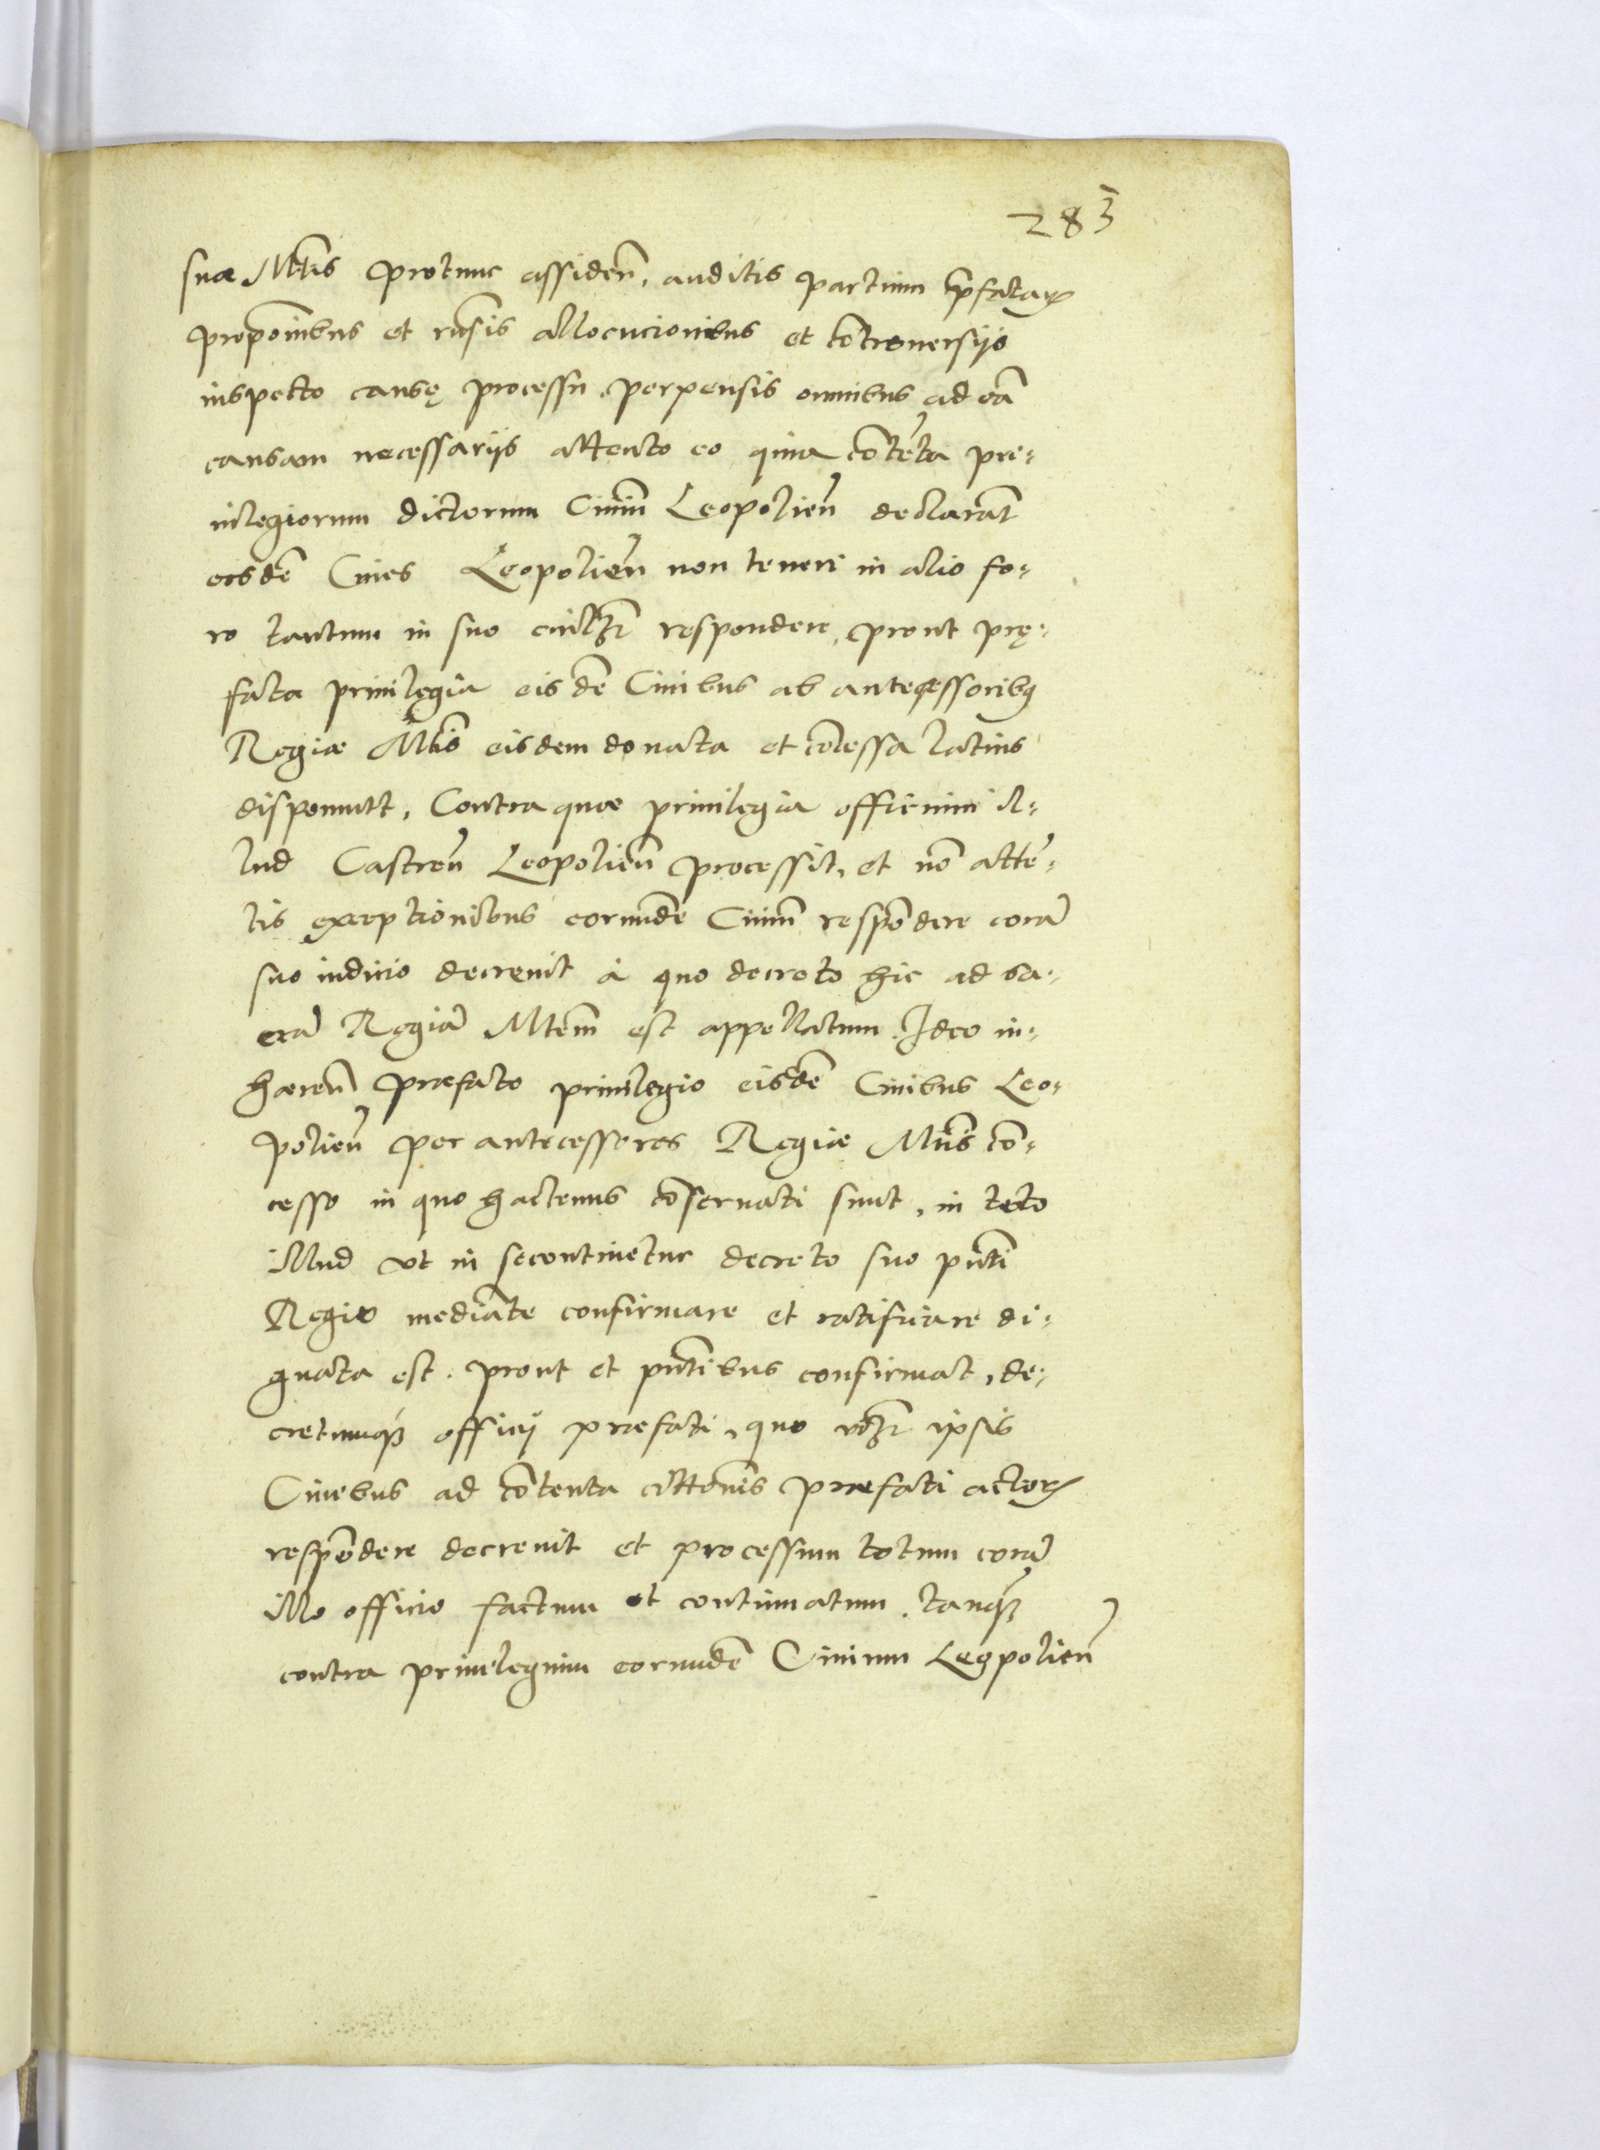 283
suæ Mttis protunc assideñ, auditis partium p̃fataꝝ
propoĩbus et rñsis allocucionibus et cõtrouersijs
inspecto causę processu, perpensis omnibus ad eã
causam necessarijs attento eo quia cõtẽta pre-
iulegiorum dictorum Ciuiũ Leopolieñ declarãt
eosdẽ Ciues Leopolieñ non teneri in alio fo-
ro tantum in suo ciuilʒ respondere, prout prę-
fata priuilegia eisdẽ Ciuibus ab antecessoribꝫ
Regiæ Mtis̃ eisdem donata et cõcessa latius
disponunt, Contra quæ priuilegia officium il-
lud Castreñ Leopolieñ processit, et nõ attẽ-
tis exceptionibus eorundẽ Ciuiũ respõdere corã
suo iudicio decreuit à quo decreto hic ad sa-
crã Regiã Mtem̃ est appellatum. Ideo in-
hæreñ præfato priuilegio eisdẽ Ciuibus Leo-
polieñ per antecessores Regiæ Mtis̃ cõ-
cesso in quo hactenus cõseruati sunt, in toto
illud vt in se continetur decreto suo pñti
Regio mediãte confirmare et ratificare di-
gnata est. prout et pñtibus confirmat, de-
cretumqꝫ officij præfati, quo ipsis
Ciuibus ad cõtenta cittõnis præfati actoꝝ
respõdere decreuit et processum totum corã
illo officio factum et continuatum, tanqꝫ̃
contra priuilegium eorundẽ Ciuium Leopolieñ